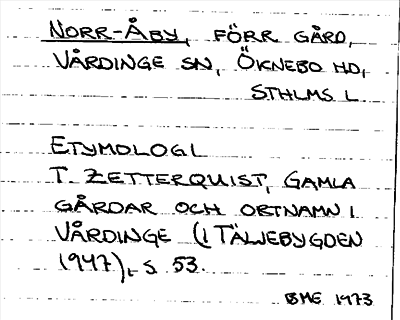 NORR-ÅBY, FÖRR GÅRD,
VÅRDINGE SN, ÖKNEBO HD,
STHLMS L
ETYMOLOGI
T. ZETTERQUIST, GAMLA
GÅRDAR OCH ORTNAMN I
VÅRDINGE (I TÄLJEBYGDEN
1947), S 53.
BME 1973